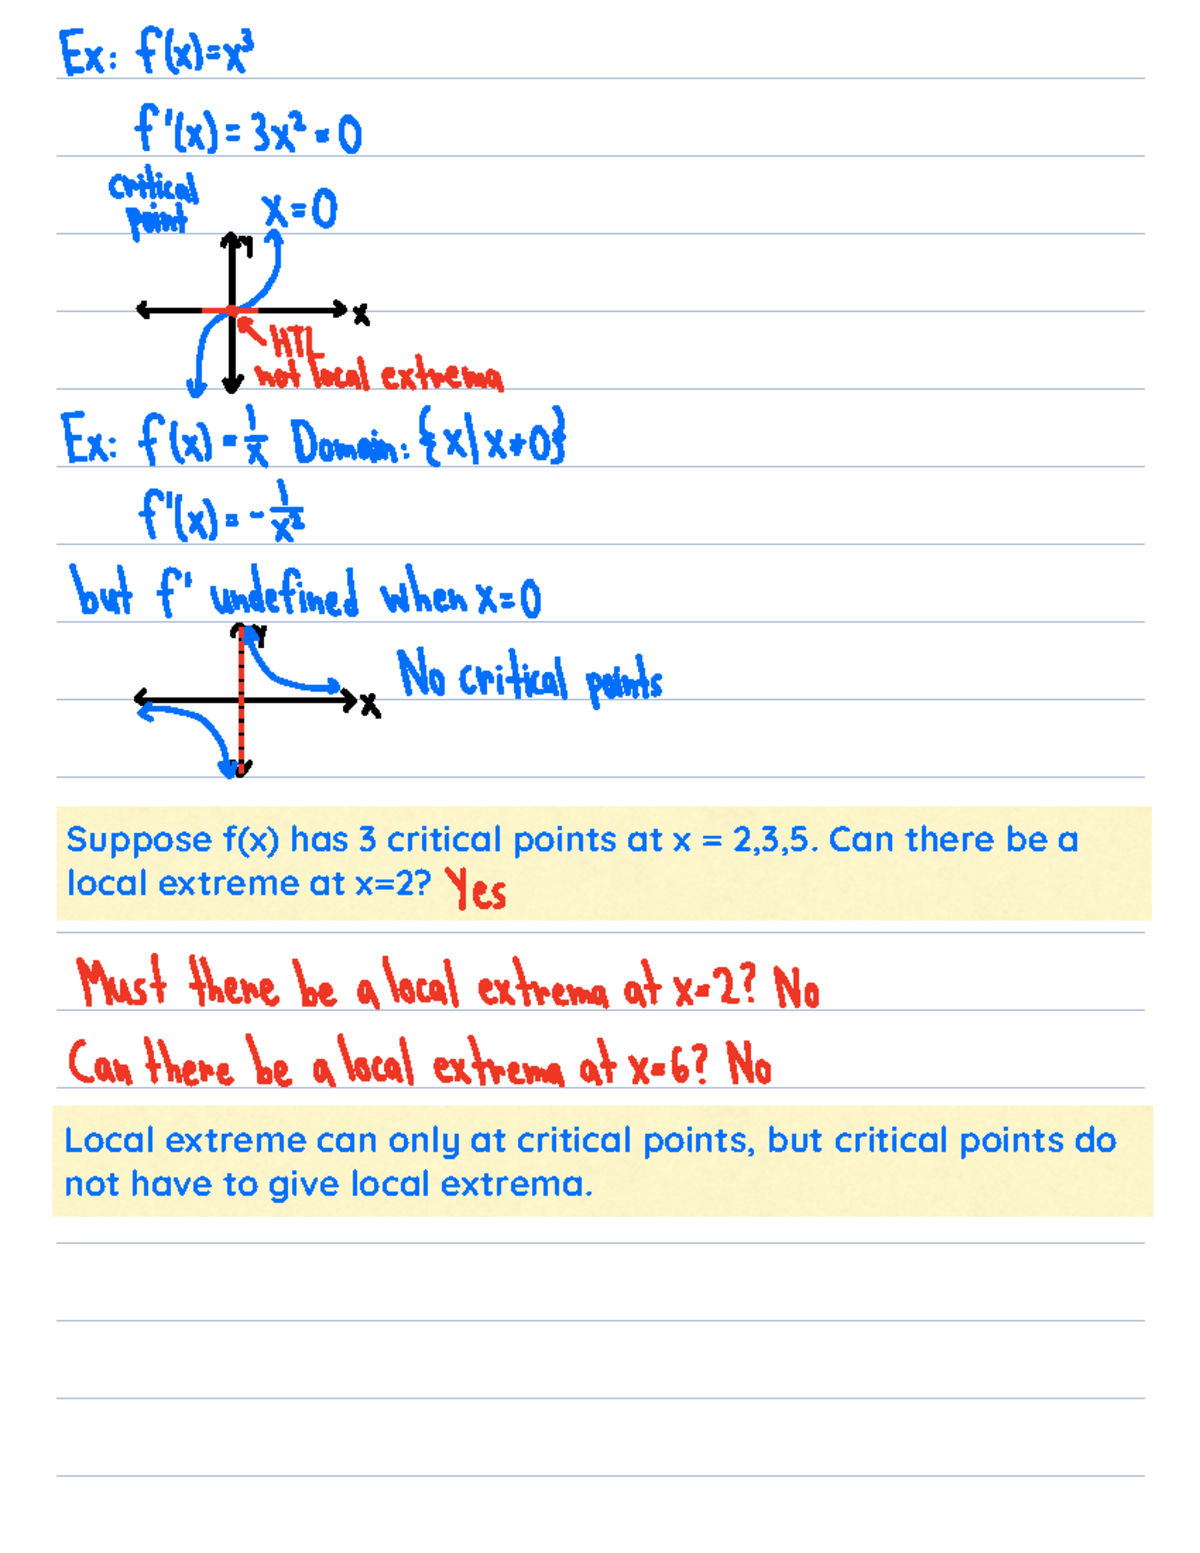 Ex: f(x)=x³
f'(x) = 3x² = 0
critical
point x=0
y
x
HTL
not local extrema
Ex: f(x) = 1/x Domain: {x|x≠0}
f'(x) = -1/x²
but f' undefined when x=0
y
No critical points
x
Suppose f(x) has 3 critical points at x = 2,3,5. Can there be a
local extreme at x=2? Yes
Must there be a local extrema at x=2? No
Can there be a local extrema at x=6? No
Local extreme can only at critical points, but critical points do
not have to give local extrema.